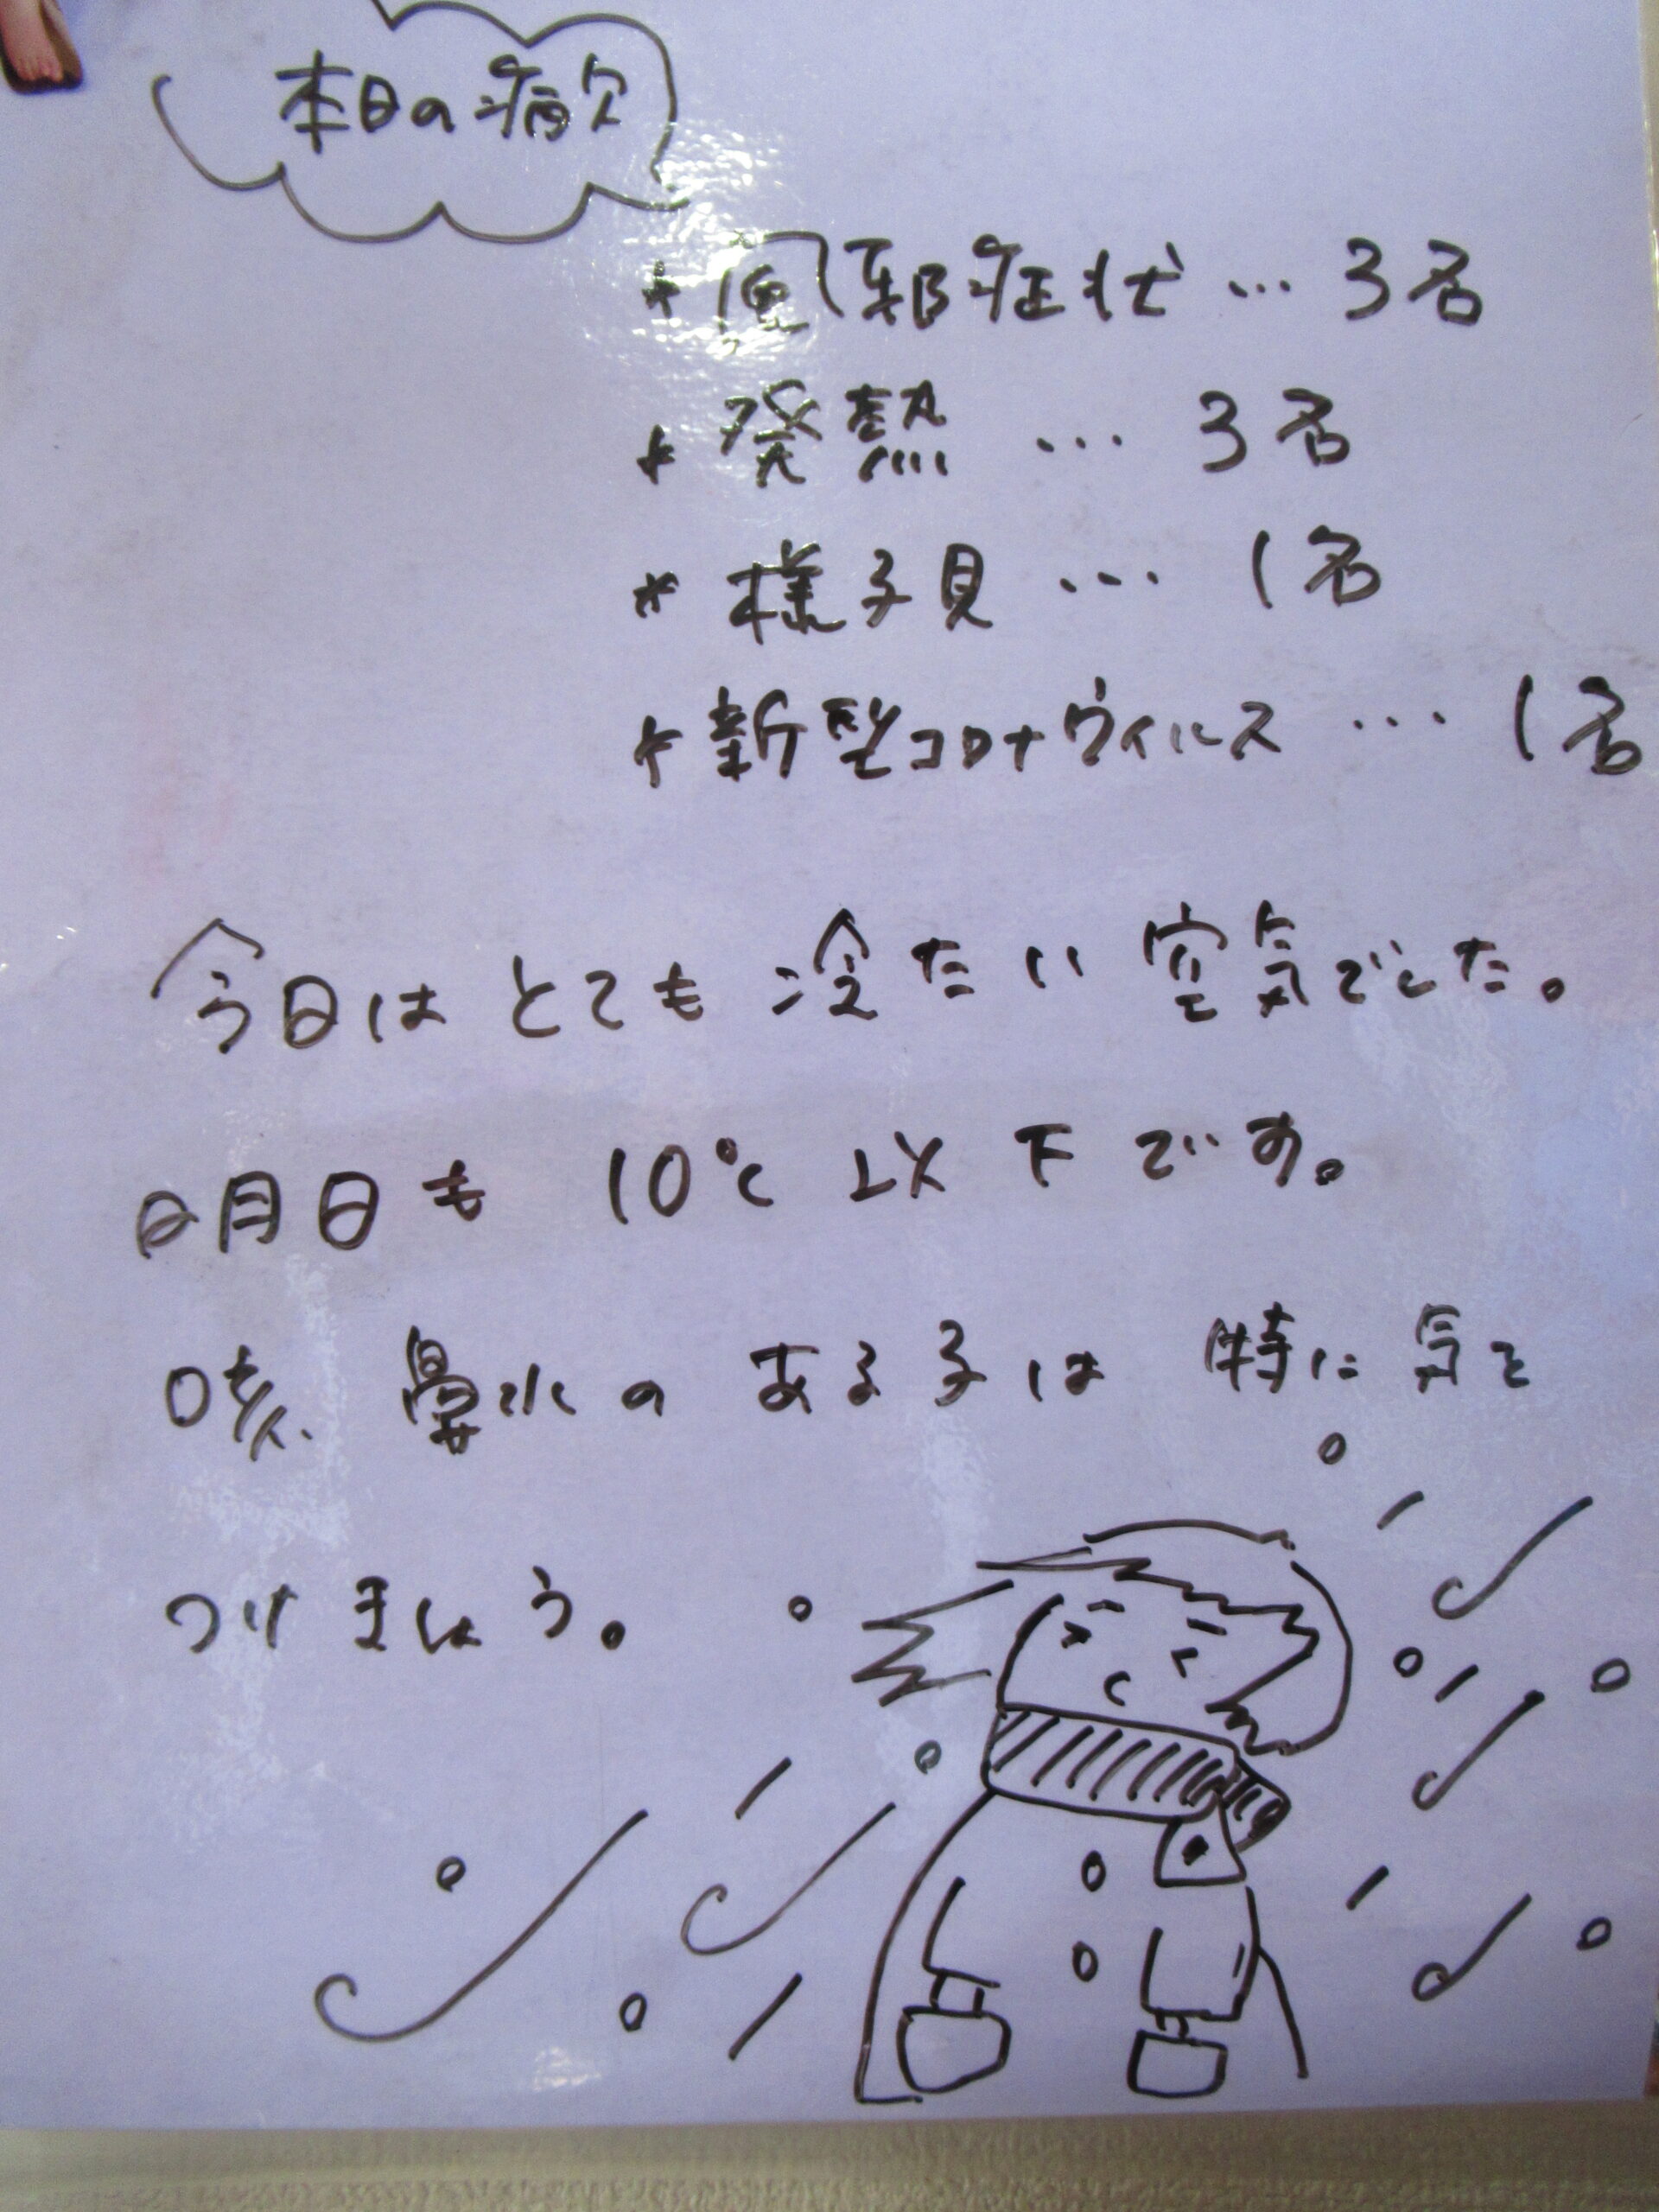 本日の病欠
* 風邪症状…3名
* 発熱…3名
* 様子見…1名
* 新型コロナウィルス…1名
今日はとても冷たい空気でした。
明日も 10℃ 以下です。
咳、鼻水のある子は特に気を
つけましょう。